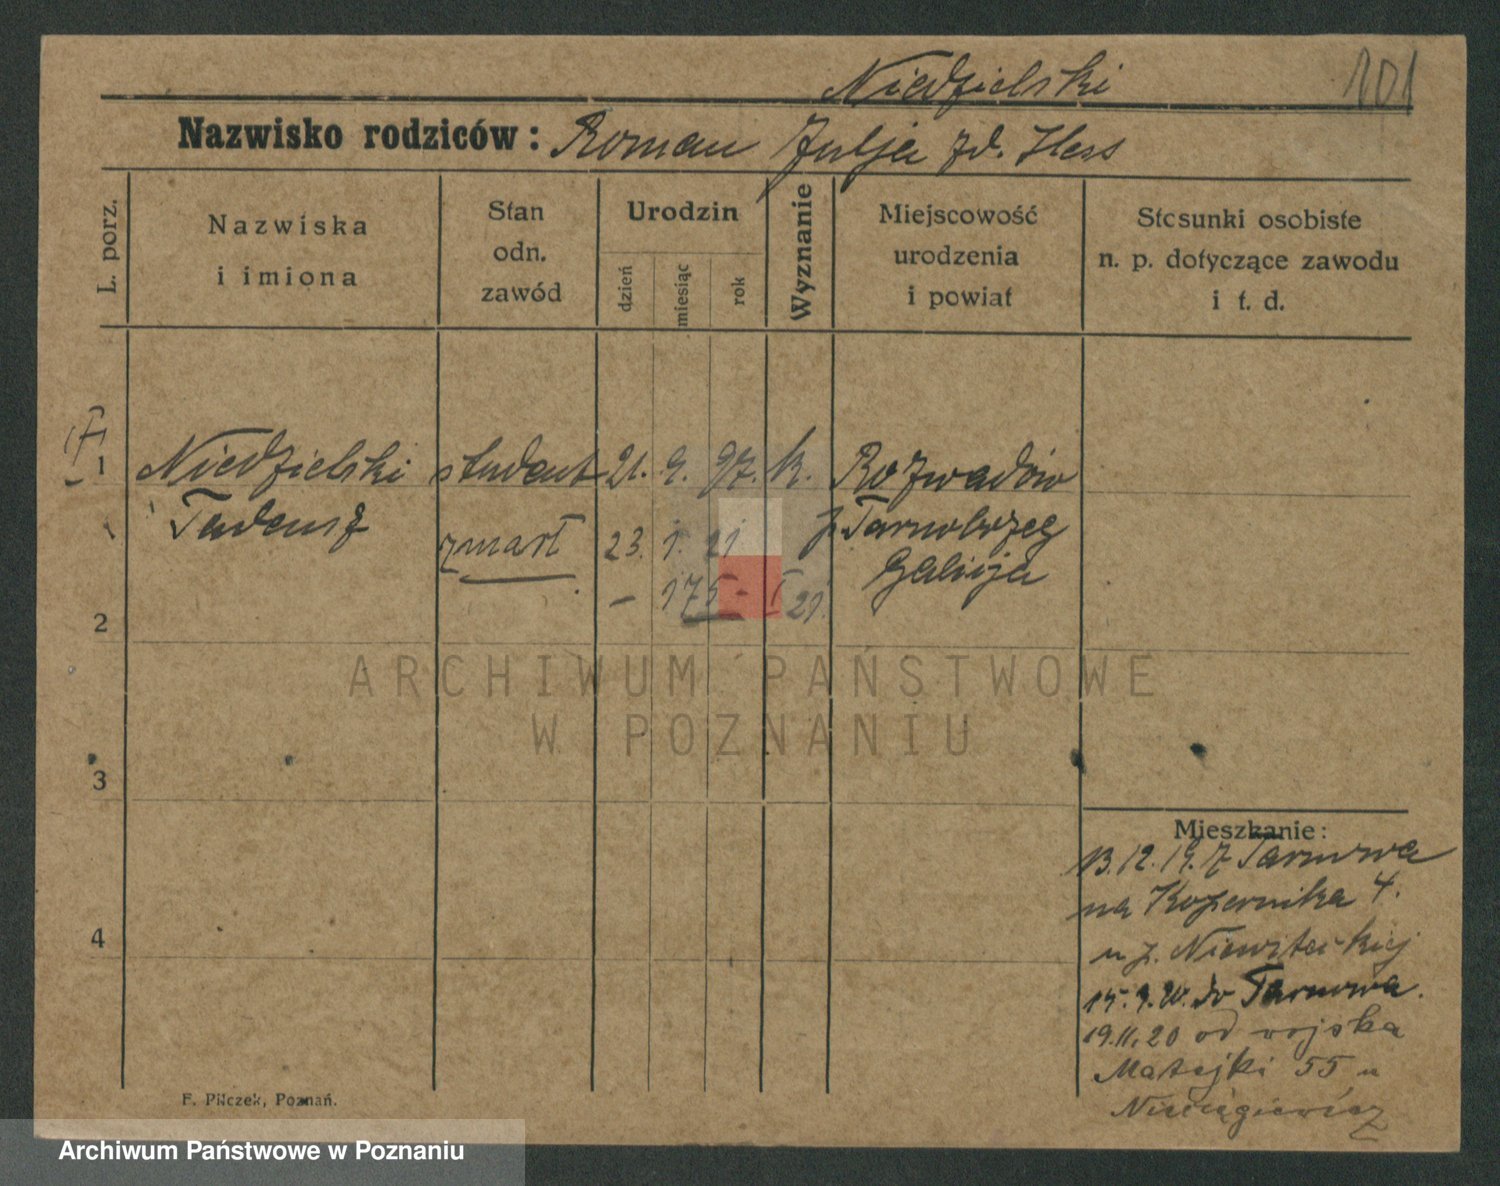 Niedzielski
101
Nazwisko rodziców: Roman Julja zd. Hess
L. porz.
Nazwiska
i imiona
Stan
odn.
zawód
Urodzin
dzień
miesiąc
rok
Wyznanie
Miejscowość
urodzenia
i powiat
Stosunki osobiste
n. p. dotyczące zawodu
i t. d.
1
Niedzielski student 21. 9. 97. k. Rozwadów
Tadeusz
p. Tarnobrzeg
zmarł 23. 1. 21
Galicja
- 175 - I 21.
2
ARCHIWUM PAŃSTWOWE
W POZNANIU
3
Mieszkanie:
13.12.19. z Tarnowa
na Kopernika 4.
4
u p.
15.9.20. do Tarnowa.
19.11.20 od wojska
Matejki 55 u
F. Pilczek, Poznań.
Archiwum Państwowe w Poznaniu